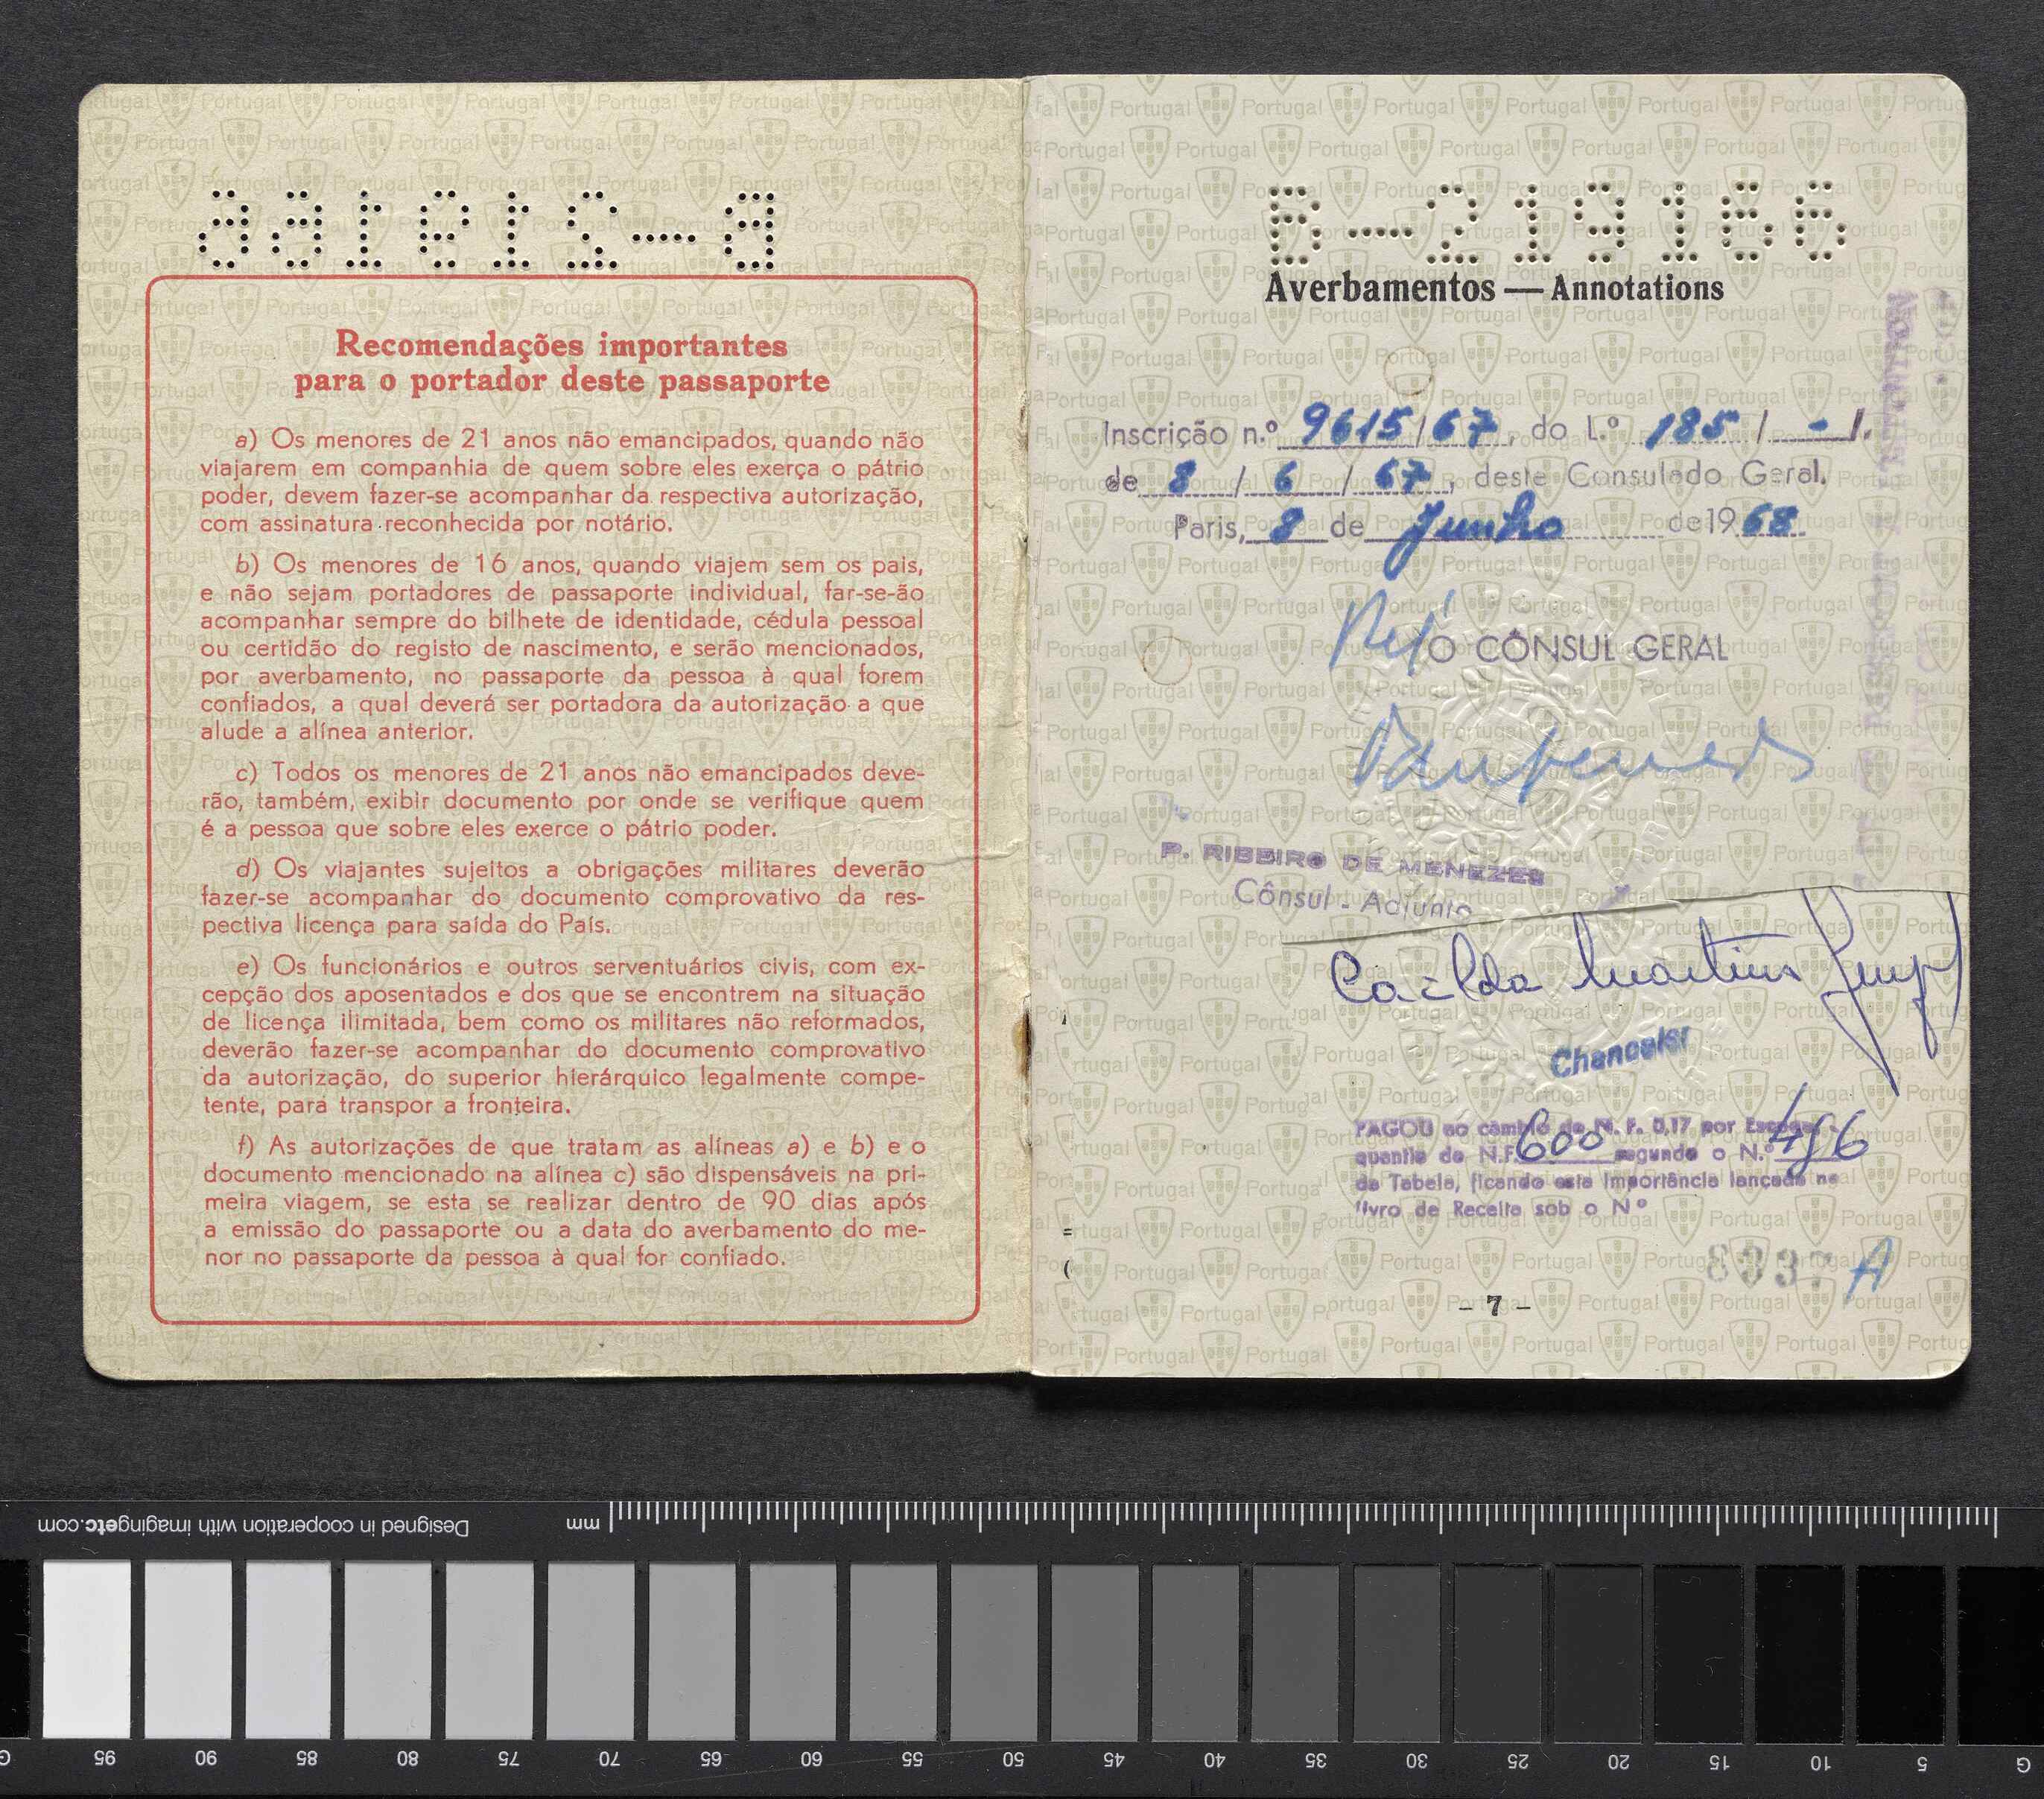 Recomendações importantes
para o portador deste passaporte
a) Os menores de 21 anos não emancipados, quando não
viajarem em companhia de quem sobre eles exerça o pátrio
poder, devem fazer-se acompanhar da respectiva autorização,
com assinatura reconhecida por notário.
b) Os menores de 16 anos, quando viajem sem os pais,
e não sejam portadores de passaporte individual, far-se-ão
acompanhar sempre do bilhete de identidade, cédula pessoal
ou certidão do registo de nascimento, e serão mencionados,
por averbamento, no passaporte da pessoa à qual forem
confiados, a qual deverá ser portadora da autorização a que
alude a alínea anterior.
c) Todos os menores de 21 anos não emancipados deve-
rão, também, exibir documento por onde se verifique quem
é a pessoa que sobre eles exerce o pátrio poder.
d) Os viajantes sujeitos a obrigações militares deverão
fazer-se acompanhar do documento comprovativo da res-
pectiva licença para saída do País.
e) Os funcionários e outros serventuários civis, com ex-
cepção dos aposentados e dos que se encontrem na situação
de licença ilimitada, bem como os militares não reformados,
deverão fazer-se acompanhar do documento comprovativo
da autorização, do superior hierárquico legalmente compe-
tente, para transpor a fronteira.
f) As autorizações de que tratam as alíneas a) e b) e o
documento mencionado na alínea c) são dispensáveis na pri-
meira viagem, se esta se realizar dentro de 90 dias após
a emissão do passaporte ou a data do averbamento do me-
nor no passaporte da pessoa à qual for confiado.
B-219166
Averbamentos — Annotations
Inscrição n.º 9615/67, do L.º 185 / - /.
de 8 / 6 / 67, deste Consulado Geral.
Paris, 8 de Junho de 1968
Pel' O CÔNSUL GERAL
P. RIBEIRO DE MENEZES
Cônsul - Adjunto
Casilda Martins
Chanceler
PAGOU ao câmbio de N. F. 0,17 por Escudo a
quantia de N.F. 600 segundo o N.º
da Tabela, ficando esta importância lançada no
livro de Receita sob o Nº
A
- 7 -
Designed in cooperation with imagingetc.com
mm
95 90 85 80 75 70 65 60 55 50 45 40 35 30 25 20 15 10 5 G